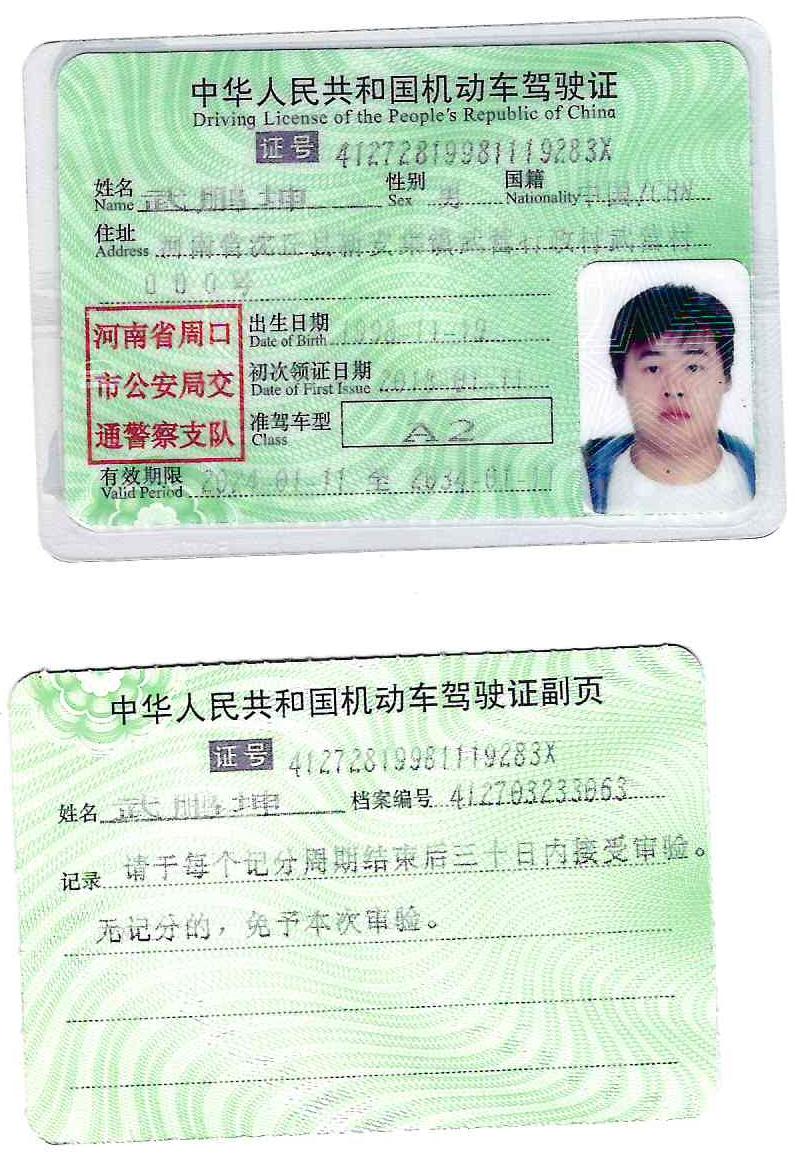 中华人民共和国机动车驾驶证
Driving License of the People's Republic of China
证号 41272819981119283X
姓名 武鹏坤 性别 男 国籍 中国/CHN
Name Sex Nationality
住址 河南省沈丘县新安集镇武营行政村武营村
Address
000号
河南省周口
市公安局交
通警察支队
出生日期 1998-11-19
Date of Birth
初次领证日期 2018-01-11
Date of First Issue
准驾车型 A2
Class
有效期限 2024-01-11 至 2034-01-11
Valid Period
中华人民共和国机动车驾驶证副页
证号 41272819981119283X
姓名 武鹏坤 档案编号 412703233063
记录 请于每个记分周期结束后三十日内接受审验。
无记分的，免予本次审验。